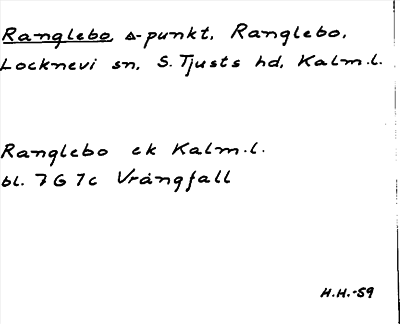 Ranglebo, Δ-punkt, Ranglebo,
Locknevi sn, S. Tjusts hd, Kalm.l.
Ranglebo ek Kalm.l.
bl. 7G7c Vrångfall
H.H.-59